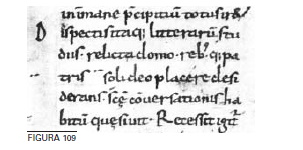 inīmane p̄cipitiū totus ir&
D ispectis itaq; litterarū stu
diis · relicta domo · reb; q; pa
tris soli deo placere desi
derans · scē cōversationis ha
bitū quęsivit · Recessit igit̄
FIGURA 109